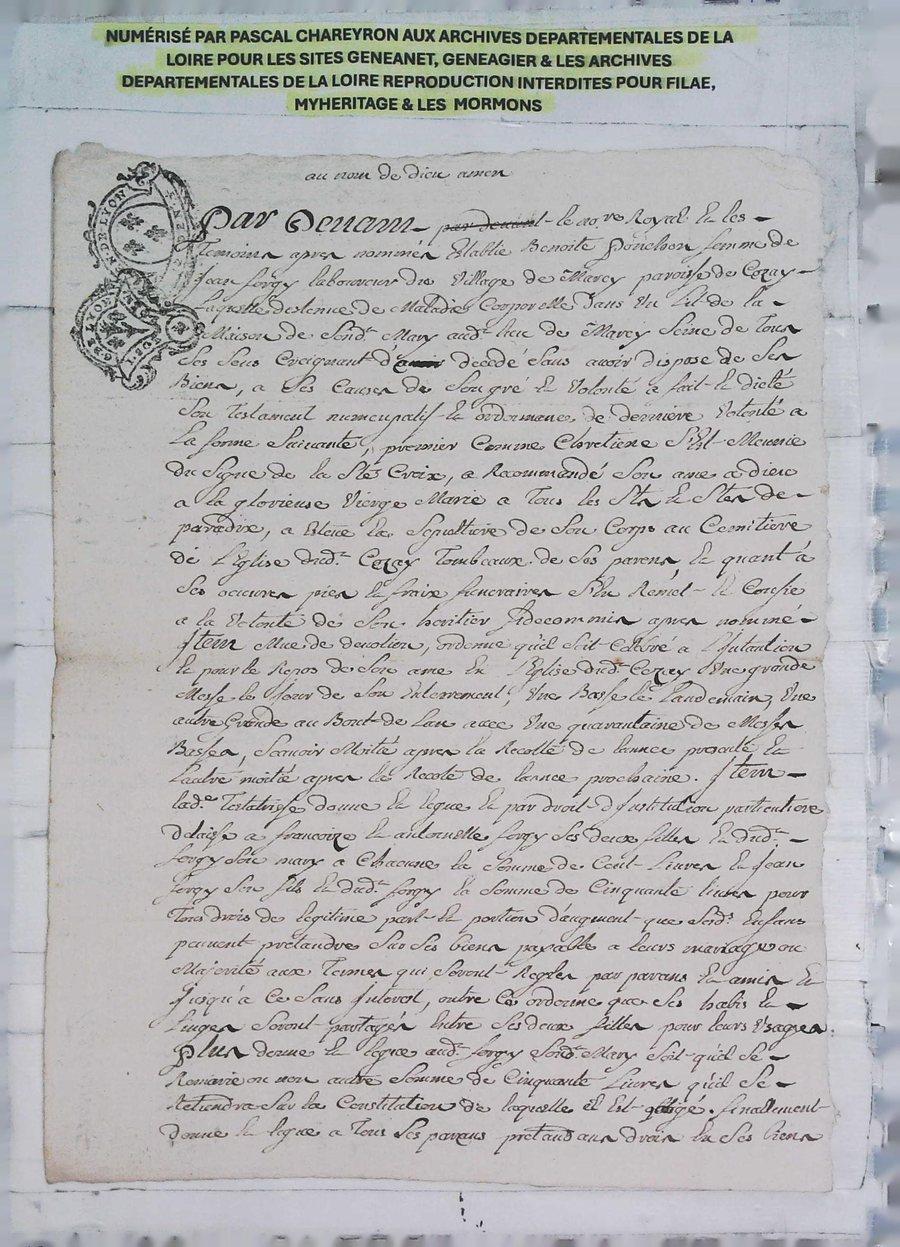 NUMÉRISÉ PAR PASCAL CHAREYRON AUX ARCHIVES DEPARTEMENTALES DE LA
LOIRE POUR LES SITES GENEANET, GENEAGIER & LES ARCHIVES
DEPARTEMENTALES DE LA LOIRE REPRODUCTION INTERDITES POUR FILAE,
MYHERITAGE & LES MORMONS
au nom de dieu amen
Par Devam par devant le no.re Royal Et les
Temoins apres nommés Establie Benoite Ponchon femme de
Jean forgy laboureur du Village de Marcy paroisse de Cezay
Laquelle destenue de Maladie Corporelle Dans Un Lit de la
Maison de Sond.t Mary aud.t lieu de Marcy Seine de Tous
Ses Sens Creignant d' decedé Sans avoir dispose de Ses
Biens, a Ses Causes de Son gré Et Volonté a fait Et dicté
Son Testament nuncupatif Et ordonnance de derniere Volonté a
La forme Suivante, premier Comme Chretiene S'Est Meunie
du Signe de la S.te Croix, a Recommandé Son ame a dieu
a la glorieuse Vierge Marie a Tous les S.ts Et S.tes de
paradix, a Eleue la Sepulture de Son Corps au Cemitiere
de L'Eglise dud.t Cezay Tombeaux de Ses parens Et quant a
Ses oeuvres pies Et fraix funeraires S'En Remet Et Confie
a la Volonté de Son heritier fidecommis apres nommé
Item Mue de devotion, ordonne qu'il Soit Celebré a L'Intantion
Et pour le Repos de Son ame En L'Eglise dud.t Cezay Une grande
Messe le Jour de Son Enterrement, Une Basse le Landemain, Une
autre Grande au Bout de Lan avec Une quarantaine de Messes
Basses, Scavoir Moitié apres la Recolte de lannee presente Et
Lautre moitié apres la Recolte de lannee prochaine. Item
lad.e Testatrisse donne Et legue Et par droit d'Institution particuliere
Delaisse a francoize Et antoinette forgy Ses deux filles Et dud.t
forgy Son mary a Chacune la Somme de Cent Livres Et Jean
forgy Son fils Et dud.t forgy la Somme de Cinquante livres pour
Tous drois de legitime part Et portion d'augment que Sesd.ts Enfans
peuvent pretandre Sur Ses biens payable a leurs mariage ou
Majorité aux Termes qui Seront Regles par parans Et amis Et
Jusqu'a Ce Sans Interest, outre Ce ordonne que Ses habis Et
Linges Seront partagés Entre Ses deux filles pour leurs Usages
Plus donne Et legue aud.t forgy Sond.t Mary Soit qu'il Se
Remarie ou non autre Somme de Cinquante Livres qu'il Se
Retiendra Sur la Constitution de laquelle il Est obligé. finallement
donne Et legue a Tous Ses parans pretandans drois En Ses biens